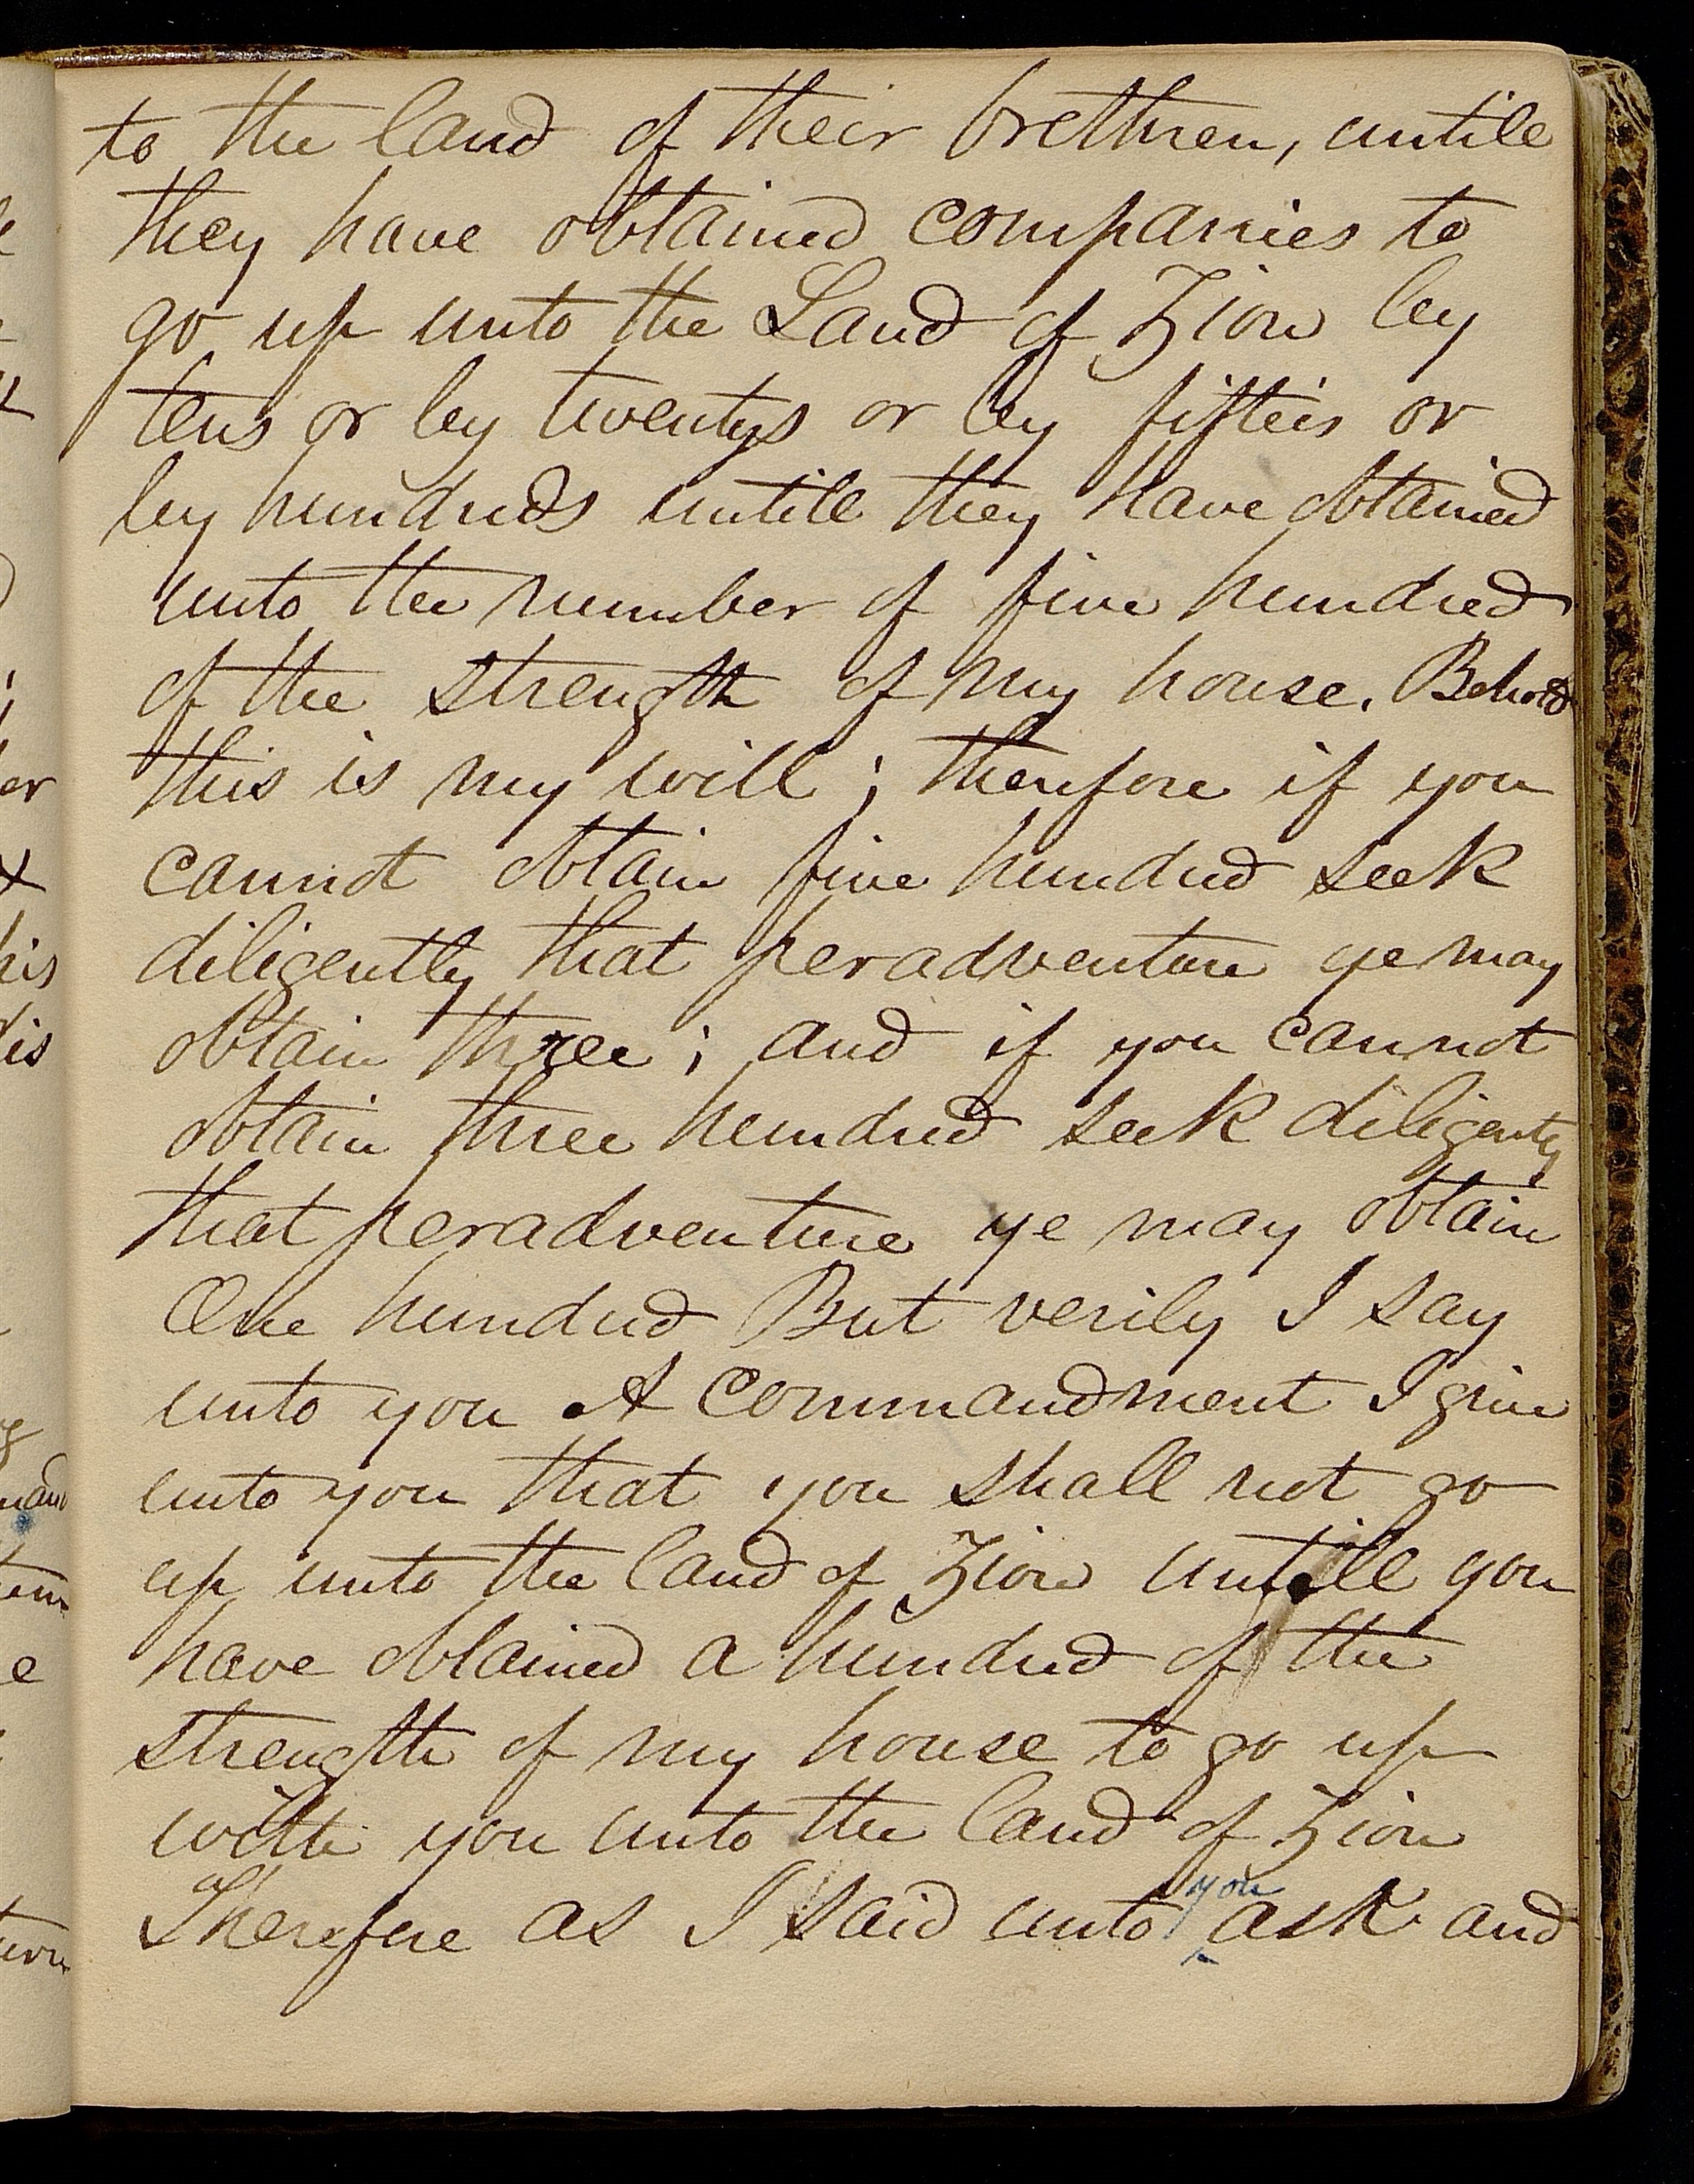 to the land of their brethren, untile
they have obtained companies to
go up unto the Land of Zion by
tens or by twentys or by fifteis or
by hundreds untill they have obtained
unto the number of five hundred
of the strength of my house. Behold
this is my will; therefore if you
cannot obtain five hundred seek
diligently that peradventure ye may
obtain three; and if you cannot
obtain three hundred seek diligently
that peradventure ye may obtain
One hundred But verily I say
unto you A commandment I give
unto you that you shall not go
up unto the land of Zion untill you
have obtained a hundred of the
strength of my house to go up
with you unto the land of Zion
Therefore as I said unto you ask and
er
his
is
e